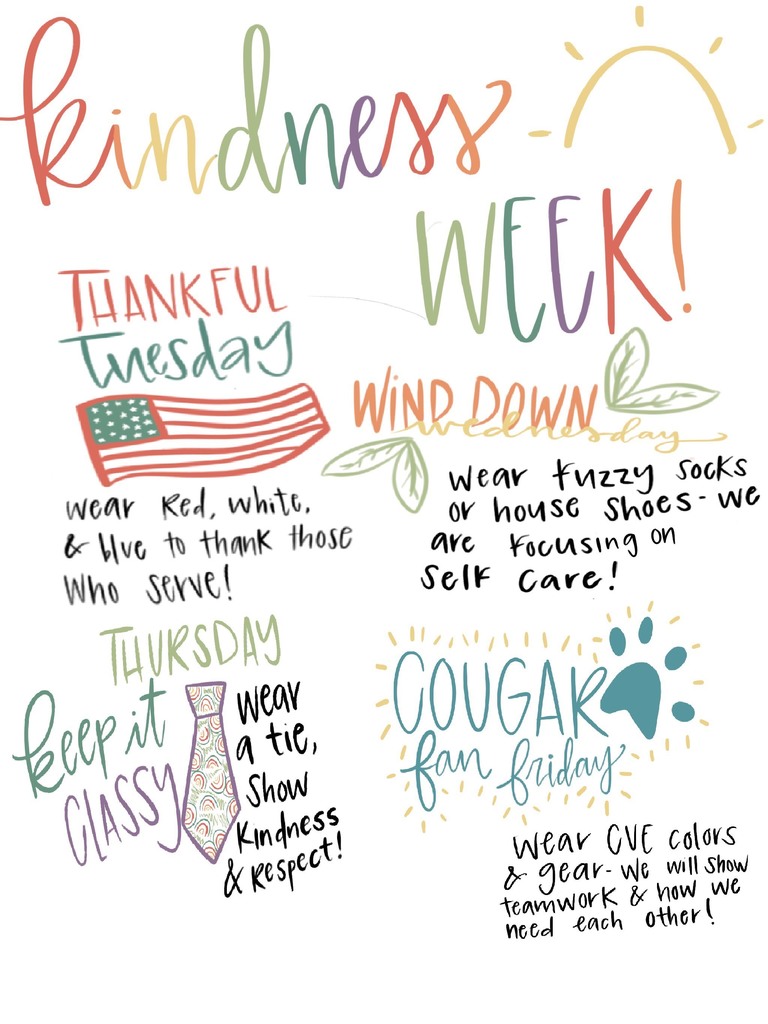 kindness
WEEK!
THANKFUL
Tuesday
wear Red, white,
& blue to thank those
who serve!
WIND DOWN
wednesday
wear fuzzy socks
or house shoes - we
are focusing on
self care!
THURSDAY
keep it
CLASSY
wear
a tie,
Show
Kindness
& Respect!
COUGAR
fan friday
wear CVE colors
& gear - we will show
teamwork & how we
need each other!